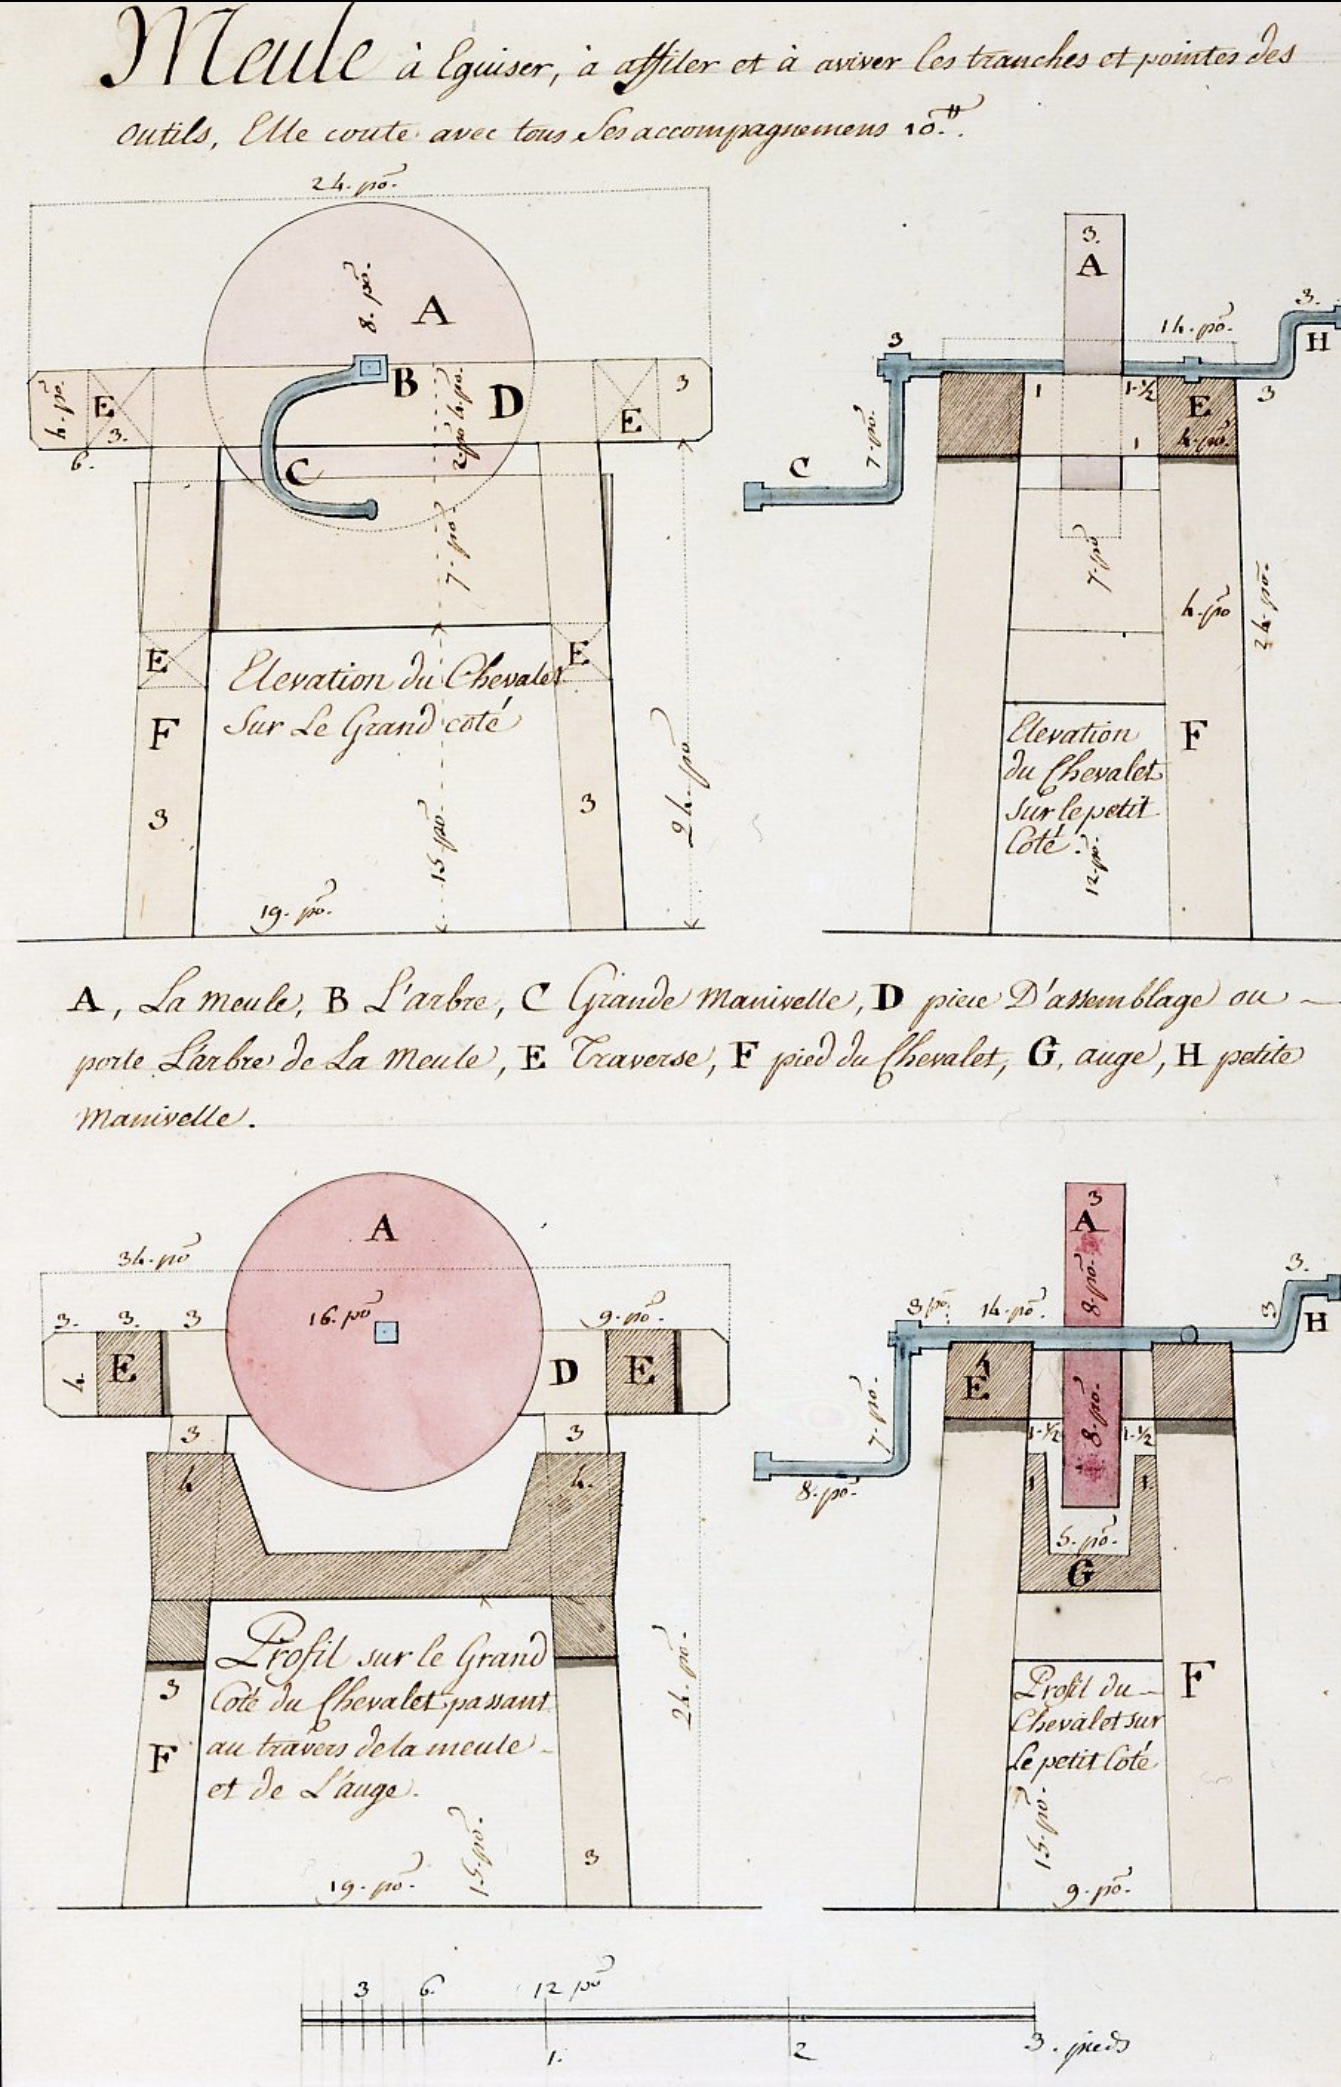 Meule à Eguiser, à affiler et à aviver les tranches et pointes des
outils, Elle coute avec tous Ses accompagnemens 10.^tt.
24. po.
8. po.
A
B
C
D
4. po.
E
3.
6.
2 po 4 po.
E
3
7. po.
E
E
Elevation du Chevalet
Sur Le Grand coté
F
3
3
15. po.
24. po
19. po.
3.
A
14. po.
3.
H
3
3
1
1-½
1
E
4. po.
7. po.
C
7. po
4. po
24. po.
Elevation
du Chevalet
sur le petit
Coté.
12. po.
F
A, La meule, B L'arbre, C Grande manivelle, D piece D'assemblage ou –
porte L'arbre de La Meule, E Traverse, F pied du Chevalet, G, auge, H petite
Manivelle.
A
34. po
3.
3.
3
16. po
9. po.
4.
E
D
E
3
3
4
4.
3
F
Profil sur le Grand
Coté du Chevalet passant
au travers de la meule –
et de L'auge.
24. po.
15. po.
3
19. po.
3
A
8. po.
3.
3 po.
14. po.
3
H
4
E
8. po.
7. po.
1-½
1-½
8. po.
1
1.
5. po.
G
Profil du –
Chevalet sur
Le petit Coté
F
15. po.
9. po.
3
6.
12 po
1.
2
3. pieds